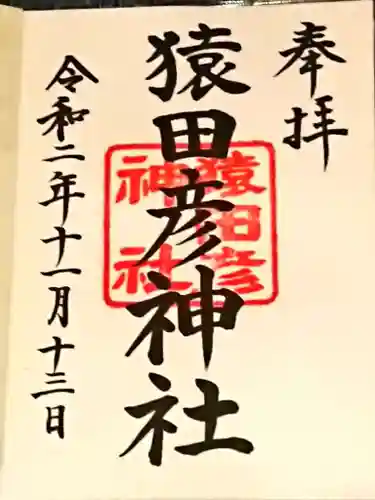 奉拝
猿田彦神社
猿田彦
神社
令和二年十一月十三日